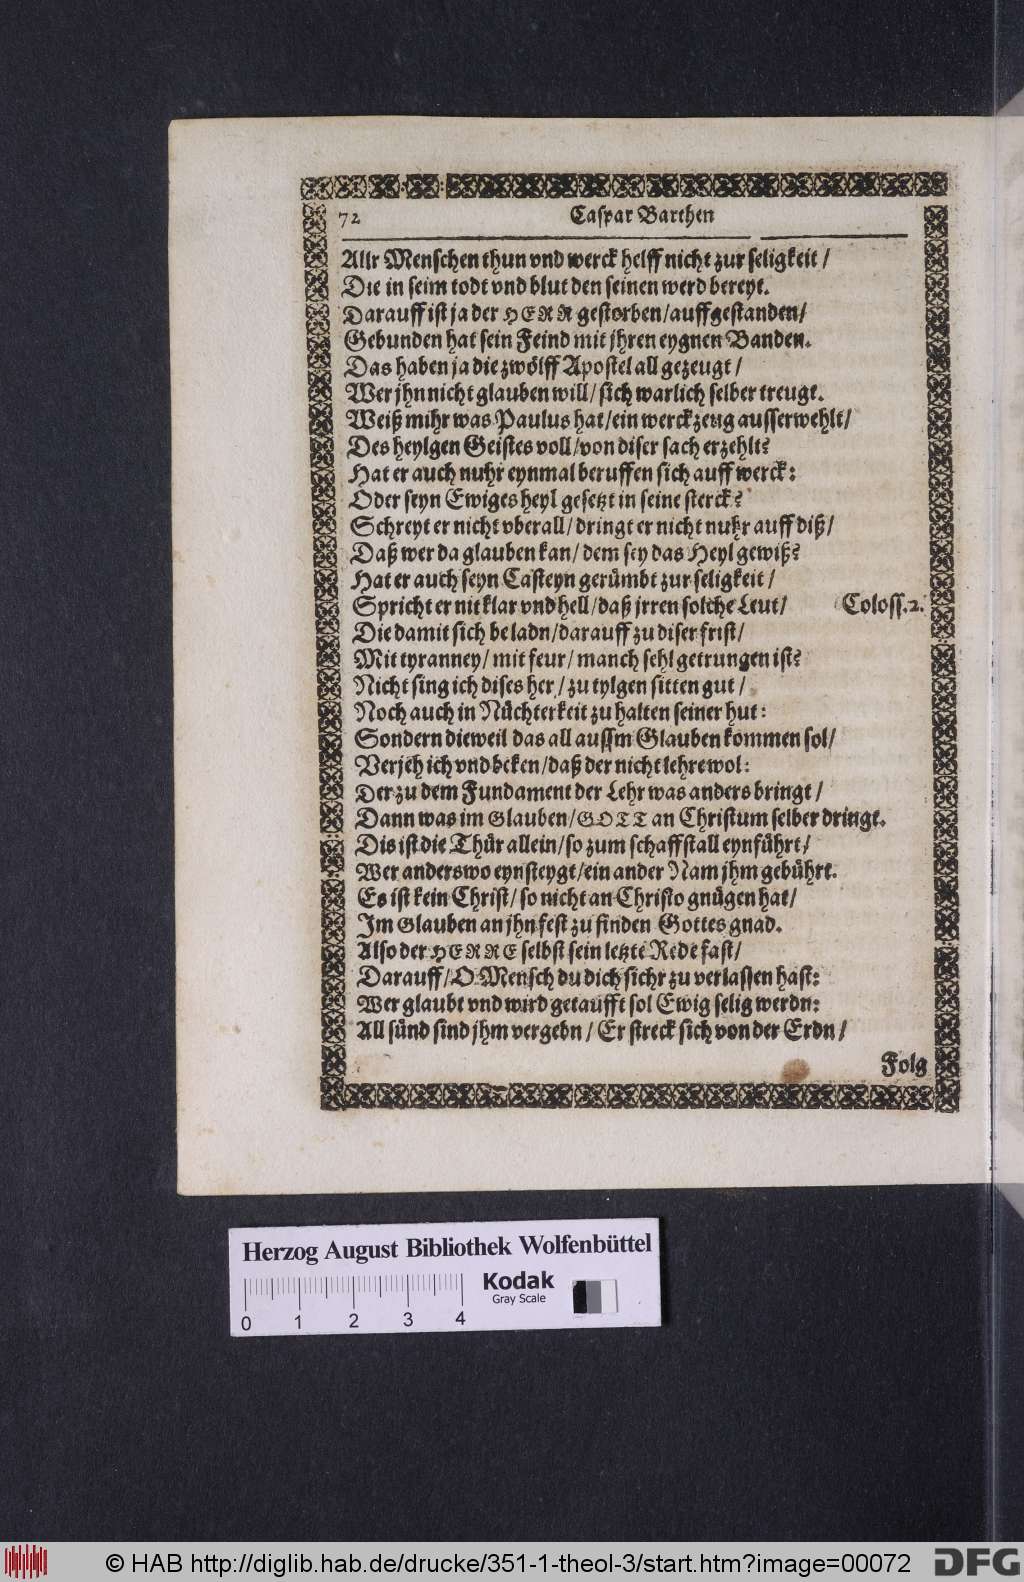 72 Caspar Barthen
Allr Menschen thun vnd werck helff nicht zur seligkeit /
Die in seim todt vnd blut den seinen werd bereyt.
Darauff ist ja der HERR gestorben/auffgestanden/
Gebunden hat sein Feind mit jhren eygnen Banden.
Das haben ja die zwölff Apostel all gezeugt /
Wer jhn nicht glauben will/sich warlich selber treugt.
Weiß mihr was Paulus hat/ein werckzeug ausserwehlt/
Des heylgen Geistes voll/von diser sach erzehlt?
Hat er auch nuhr eynmal beruffen sich auff werck:
Oder seyn Ewiges heyl gesetzt in seine sterck?
Schreyt er nicht vberall/dringt er nicht nuhr auff diß/
Daß wer da glauben kan/dem sey das Heyl gewiß?
Hat er auch seyn Casteyn gerümbt zur seligkeit /
Spricht er nit klar vnd hell/daß jrren solche Leut/ Coloss.2.
Die damit sich beladn/darauff zu diser frist/
Mit tyranney/mit feur/manch sehl getrungen ist?
Nicht sing ich dises her/zu tylgen sitten gut /
Noch auch in Nüchterkeit zu halten seiner hut:
Sondern dieweil das all aussm Glauben kommen sol/
Verjeh ich vnd beken/daß der nicht lehre wol:
Der zu dem Fundament der Lehr was anders bringt /
Dann was im Glauben/GOTT an Christum selber dringt.
Dis ist die Thür allein/so zum schaffstall eynführt/
Wer anderswo eynsteygt/ein ander Nam jhm gebührt.
Es ist kein Christ/so nicht an Christo gnügen hat/
Im Glauben an jhn fest zu finden Gottes gnad.
Also der HERRE selbst sein letzte Rede fast/
Darauff/O Mensch du dich sichr zu verlassen hast:
Wer glaubt vnd wird getaufft sol Ewig selig werdn:
All sünd sind jhm vergebn / Er streck sich von der Erdn /
Folg
Herzog August Bibliothek Wolfenbüttel
Kodak
Gray Scale
0 1 2 3 4
© HAB http://diglib.hab.de/drucke/351-1-theol-3/start.htm?image=00072
DFG